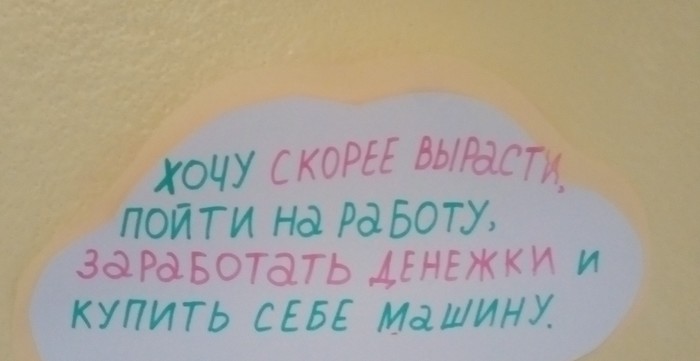 ХОЧУ СКОРЕЕ ВЫРАСТИ,
ПОЙТИ НА РАБОТУ,
ЗАРАБОТАТЬ ДЕНЕЖКИ И
КУПИТЬ СЕБЕ МАШИНУ.